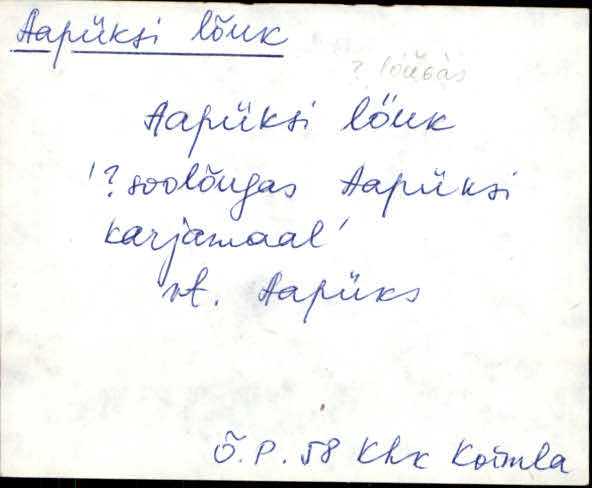 Aapüksi lõuk
Aapüksi lõuk
'? soolõugas Aapüksi
karjamaal'
vt. Aapüks
Õ.P. 58 Khk Koimla